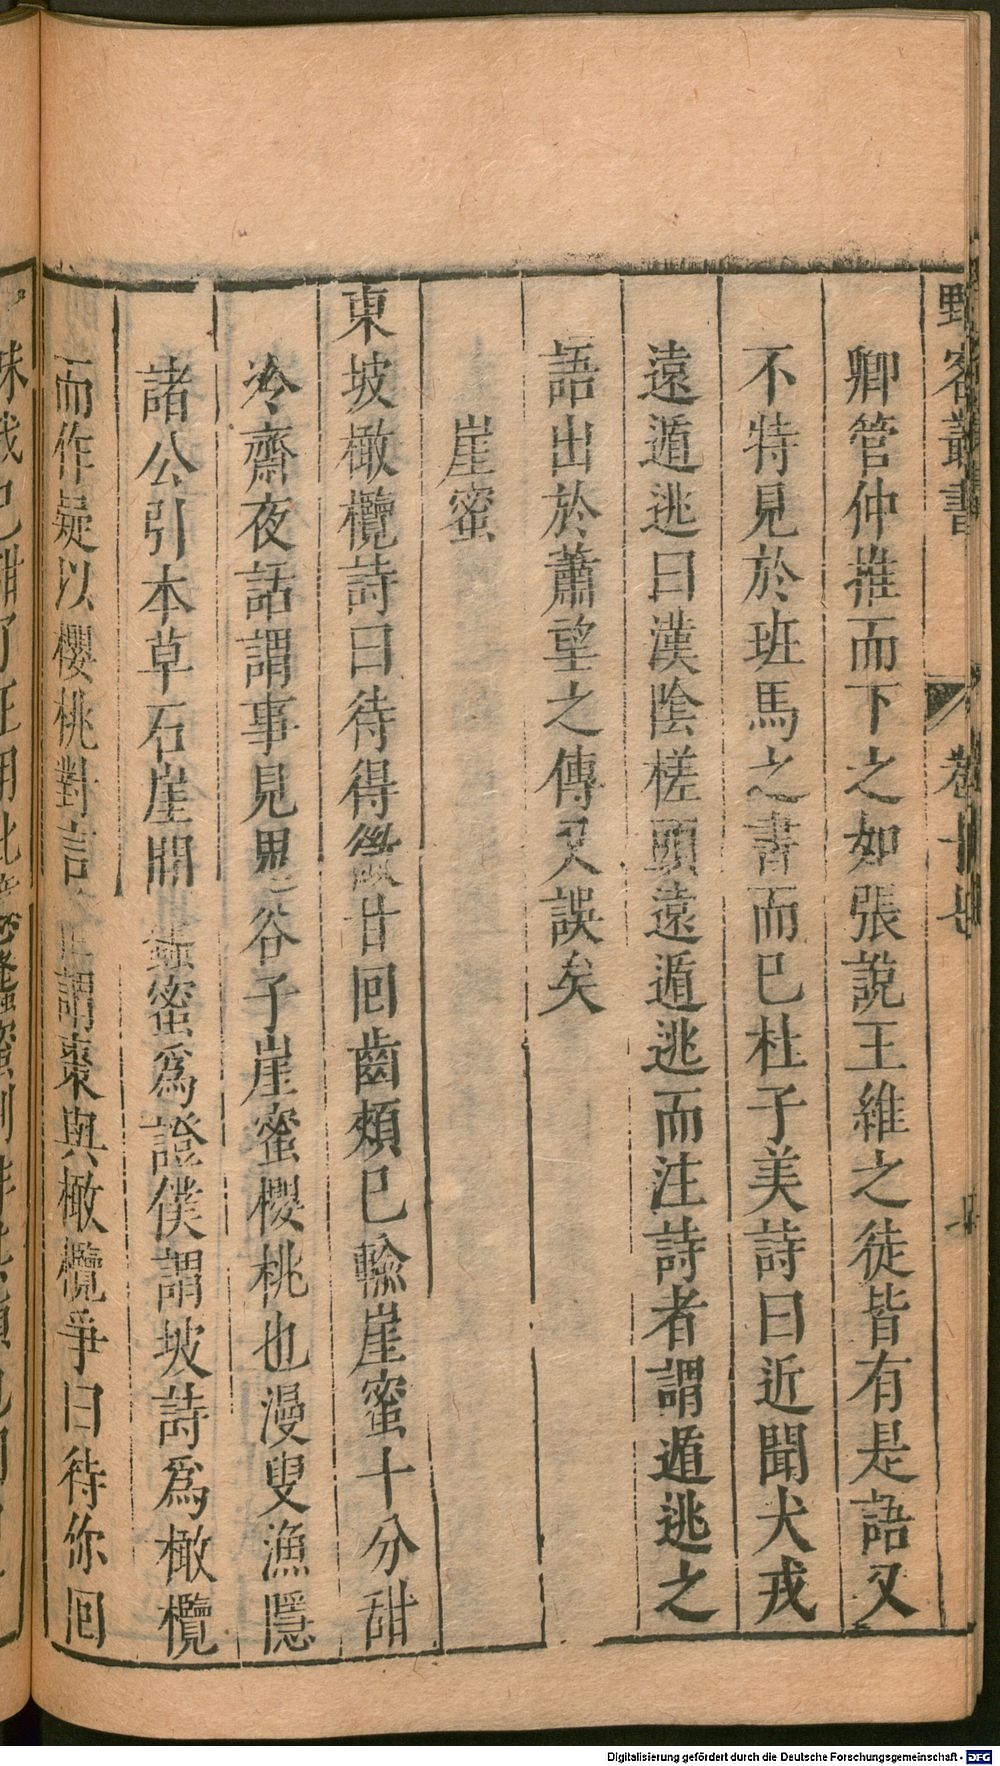 野客叢書 卷十
卿管仲推而下之如張說王維之徒皆有是語又
不特見於班馬之書而已杜子美詩曰近聞犬戎
遠遁逃曰漢陰槎頭遠遁逃而注詩者謂遁逃之
語出於蕭望之傳又誤矣
崖蜜
東坡橄欖詩曰待得微甘回齒頰已輸崖蜜十分甜
冷齋夜話謂事見鬼谷子崖蜜櫻桃也漫叟漁隱
諸公引本草石崖間蜂蜜為證僕謂坡詩為橄欖
而作疑以櫻桃對言謂棗與橄欖爭曰待你回
味我已甜了正用此
Digitalisierung gefördert durch die Deutsche Forschungsgemeinschaft - DFG